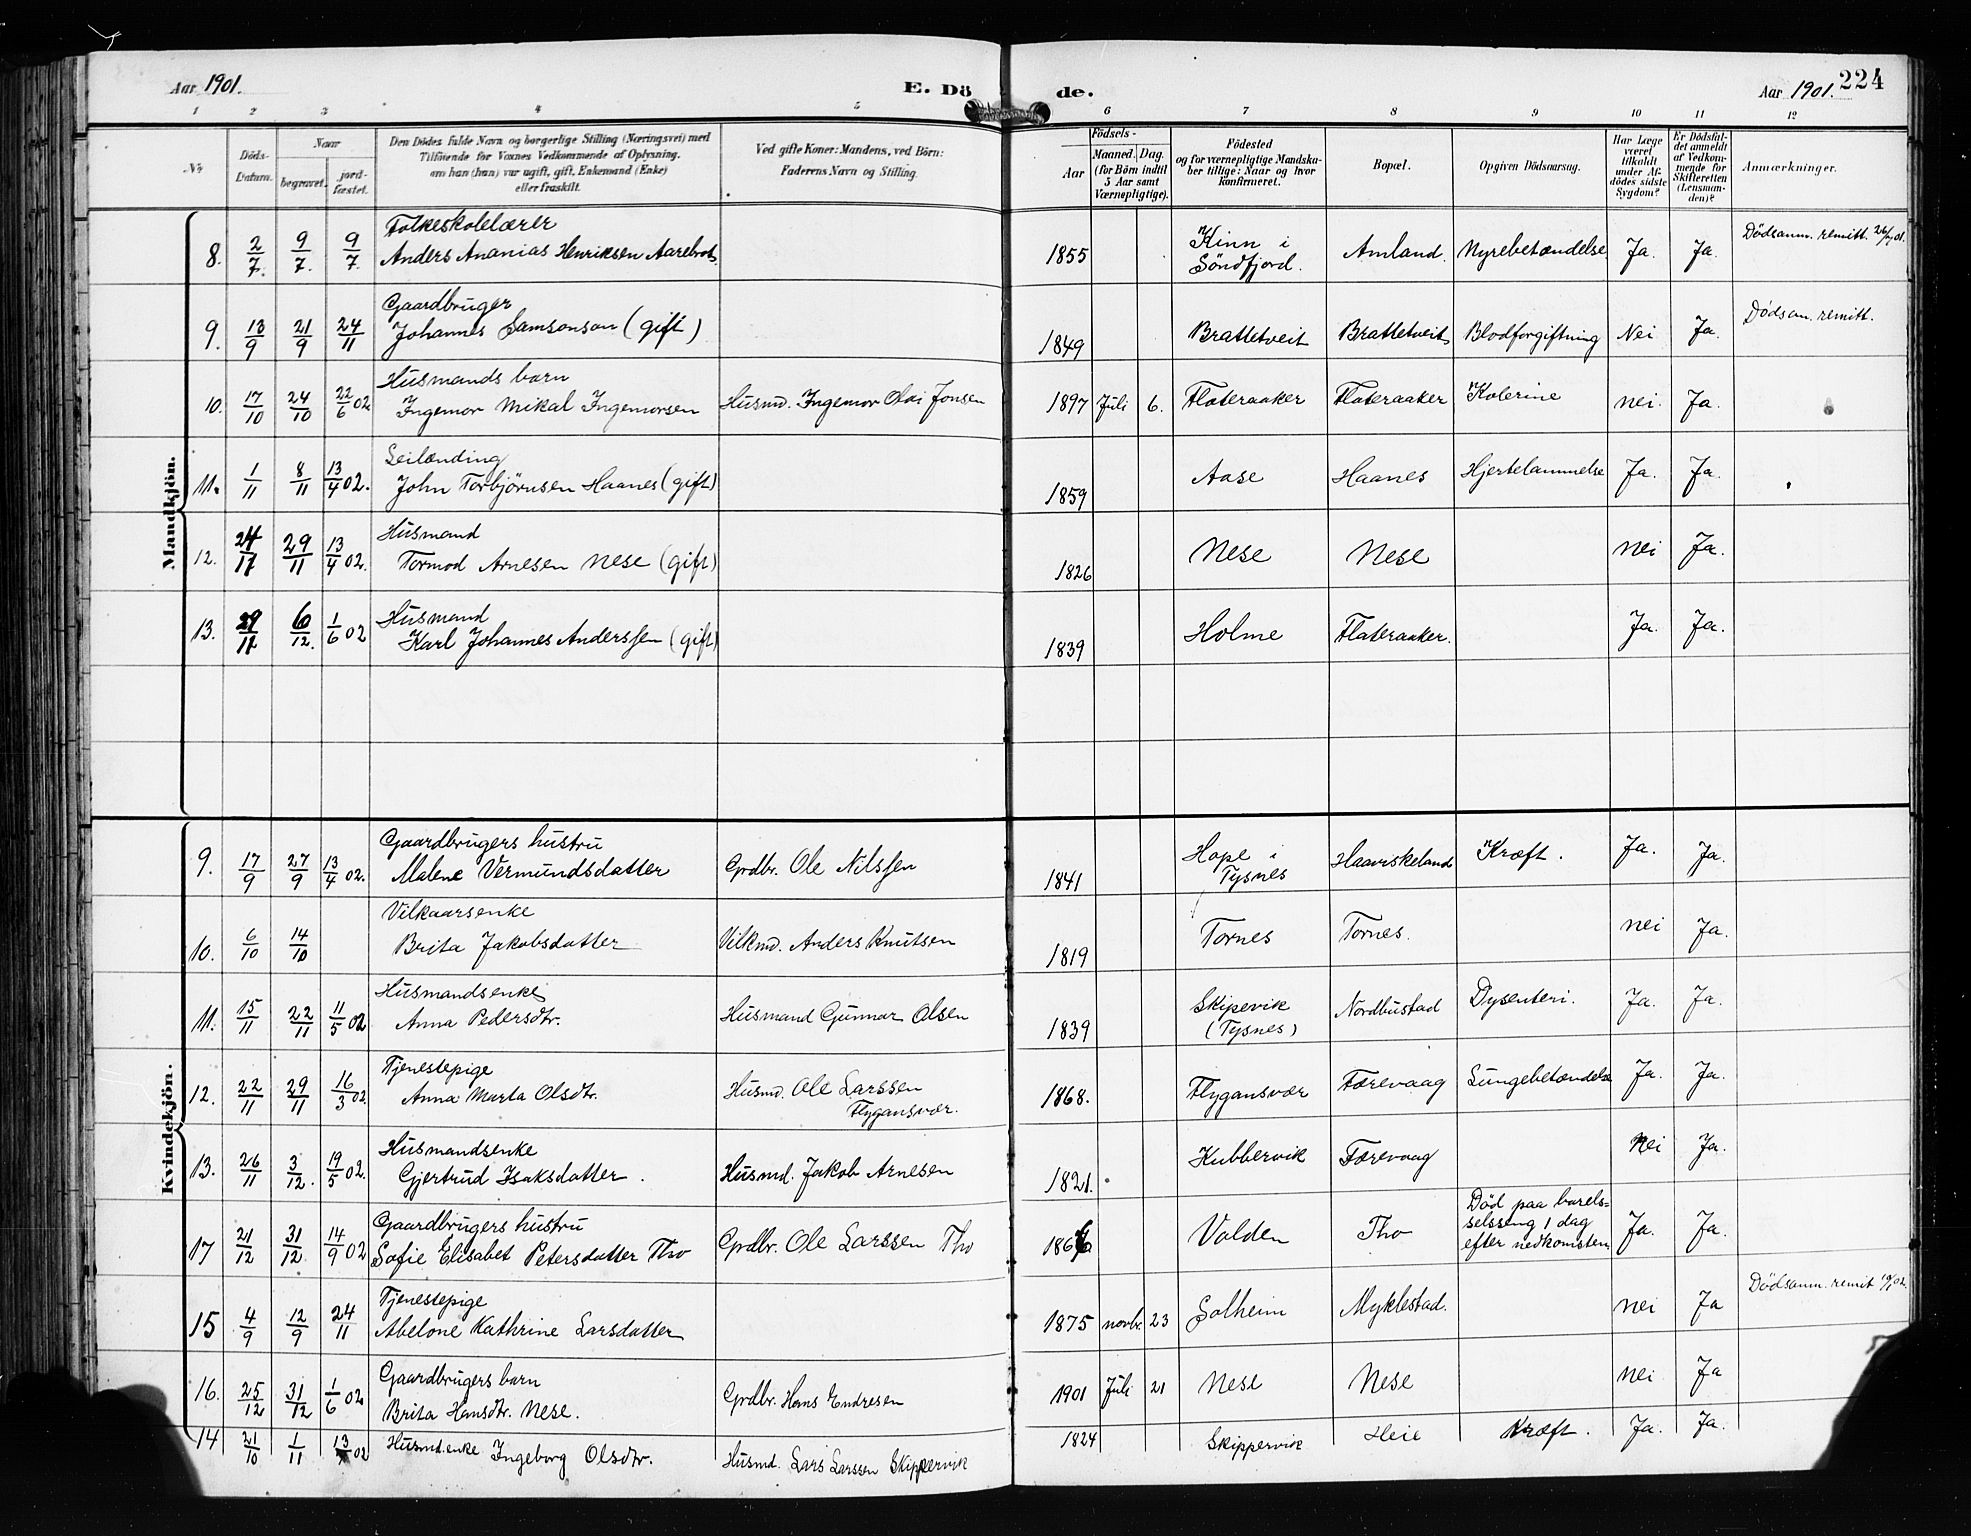 Aar 1901. E. Dö de. Aar 1901. 224
1 2 3 4 5 6 7 8 9 10 11 12
No Döds-Datum. Naar begravet. jord-fæstet. Den Dödes fulde Navn og borgerlige Stilling (Næringsvei) med
Tilföiende for Voxnes Vedkommende af Oplysning,
om han (hun) var ugift, gift, Enkemand (Enke)
eller fraskilt.
Ved gifte Koner: Mandens, ved Börn:
Faderens Navn og Stilling.
Födsels-
Aar Maaned. Dag.
(for Börn indtil
5 Aar samt
Værnepligtige).
Födested
og for værnepligtige Mandska-
ber tillige: Naar og hvor
konfirmeret.
Bopæl.
Opgiven Dödsaarsag.
Har Læge
været
tilkaldt
under Af-
dödes sidste
Sygdom?
Er Dödsfal-
det anmeldt
af Vedkom-
mende for
Skifteretten
(Lensman-
den)?
Anmærkninger.
Mandkjön.
Folkeskolelærer
8. 2/7. 9/7. 9/7. Anders Ananias Henriksen Aarebrot. 1855 Kinn i Søndfjord. Amland. Nyrebetændelse Ja. Ja. Dødsanm. remitt. 26/7 01.
Gaardbruger
9. 13/9 21/9 24/11 Johannes Samsonson (gift) 1849 Brattetveit Brattetveit Blodforgiftning Nei Ja. Dødsan. remitt.
Husmands barn
10. 17/10 24/10 22/6 02 Ingemor Mikal Ingemorsen Husmd. Ingemor Olai Jonsen 1897 Juli 6. Flateraaker Flateraaker Kolerine nei. Ja.
Leilænding
11. 1/11 8/11 13/4 02. John Torbjørnsen Haanes (gift) 1859 Aase Haanes Hjertelammelse Ja. Ja.
Husmand
12. 24/17 29/11 13/4 02. Tormod Arnesen Nese (gift) 1826 Nese Nese nei Ja.
Husmand
13. 29/11 6/12. 1/6 02 Karl Johannes Anderssen (gift) 1839 Holme Flateraaker. Ja. Ja.
Kvindekjön.
Gaardbrugers hustru
9. 17/9 27/9 13/4 02. Malene Vermundsdatter Grdbr. Ole Nilssen 1841 Hope i Tysnes Haaviskeland Kræft. Ja. Ja.
Vilkaarsenke
10. 6/10 14/10 Brita Jakobsdatter Vilkmd. Anders Knutsen 1819 Tornes Tornes. nei Ja.
Husmandsenke
11. 15/11 22/11 11/5 02 Anna Pedersdtr. Husmand Gunnar Olsen 1839 Skipevik (Tysnes) Nordhustad Dysenteri. Ja. Ja.
Tjenestepige
12. 22/11 29/11 16/3 02 Anna Marta Olsdtr. Husmd. Ole Larssen Flygansvær. 1868. Flygansvær Færevaag Lungebetændelse Ja. Ja.
Husmandsenke
13. 26/11 3/12. 19/5 02. Gjertrud Isaksdatter. Husmd. Jakob Arnesen 1821. Kubbervik Færevaag Nei Ja.
Gaardbrugers hustru
17 21/12 31/12 14/9 02 Sofie Elisabet Petersdatter Tho Grdbr. Ole Larssen Tho 1866 Valden Tho Død paa barels-
selsseng 1 dag
efter nedkomsten Ja. Ja.
Tjenestepige
15 4/9 12/9 24/11 Abelone Kathrine Larsdatter 1875 novbr. 23 Solheim Myklestad. nei Ja Dødsanm. remit 10/1 02.
Gaardbrugers barn
16. 25/12 31/12 1/6 02 Brita Hansdtr. Nese. Grdbr. Hans Endresen 1901 Juli 21 Nese Nese nei Ja
14 21/10 1/11 13/4 02 Husmd.enke Ingeborg Olsdtr. Husmd. Lars Larssen Skippervik 1824 Skippervik Heie Kræft. Ja. Ja.